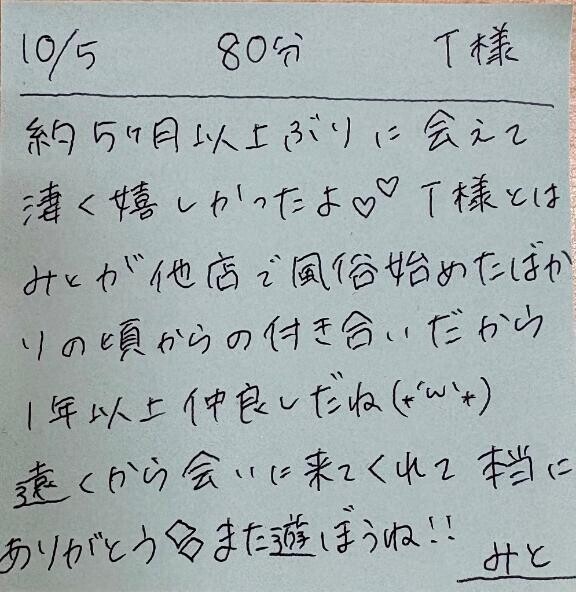 10/5 80分 T様
約5ヶ月以上ぶりに会えて
凄く嬉しかったよ♡♡ T様とは
みとが他店で風俗始めたばか
りの頃からの付き合いだから
1年以上仲良しだね(*'ω'*)
遠くから会いに来てくれて本当に
ありがとう また遊ぼうね!!
みと